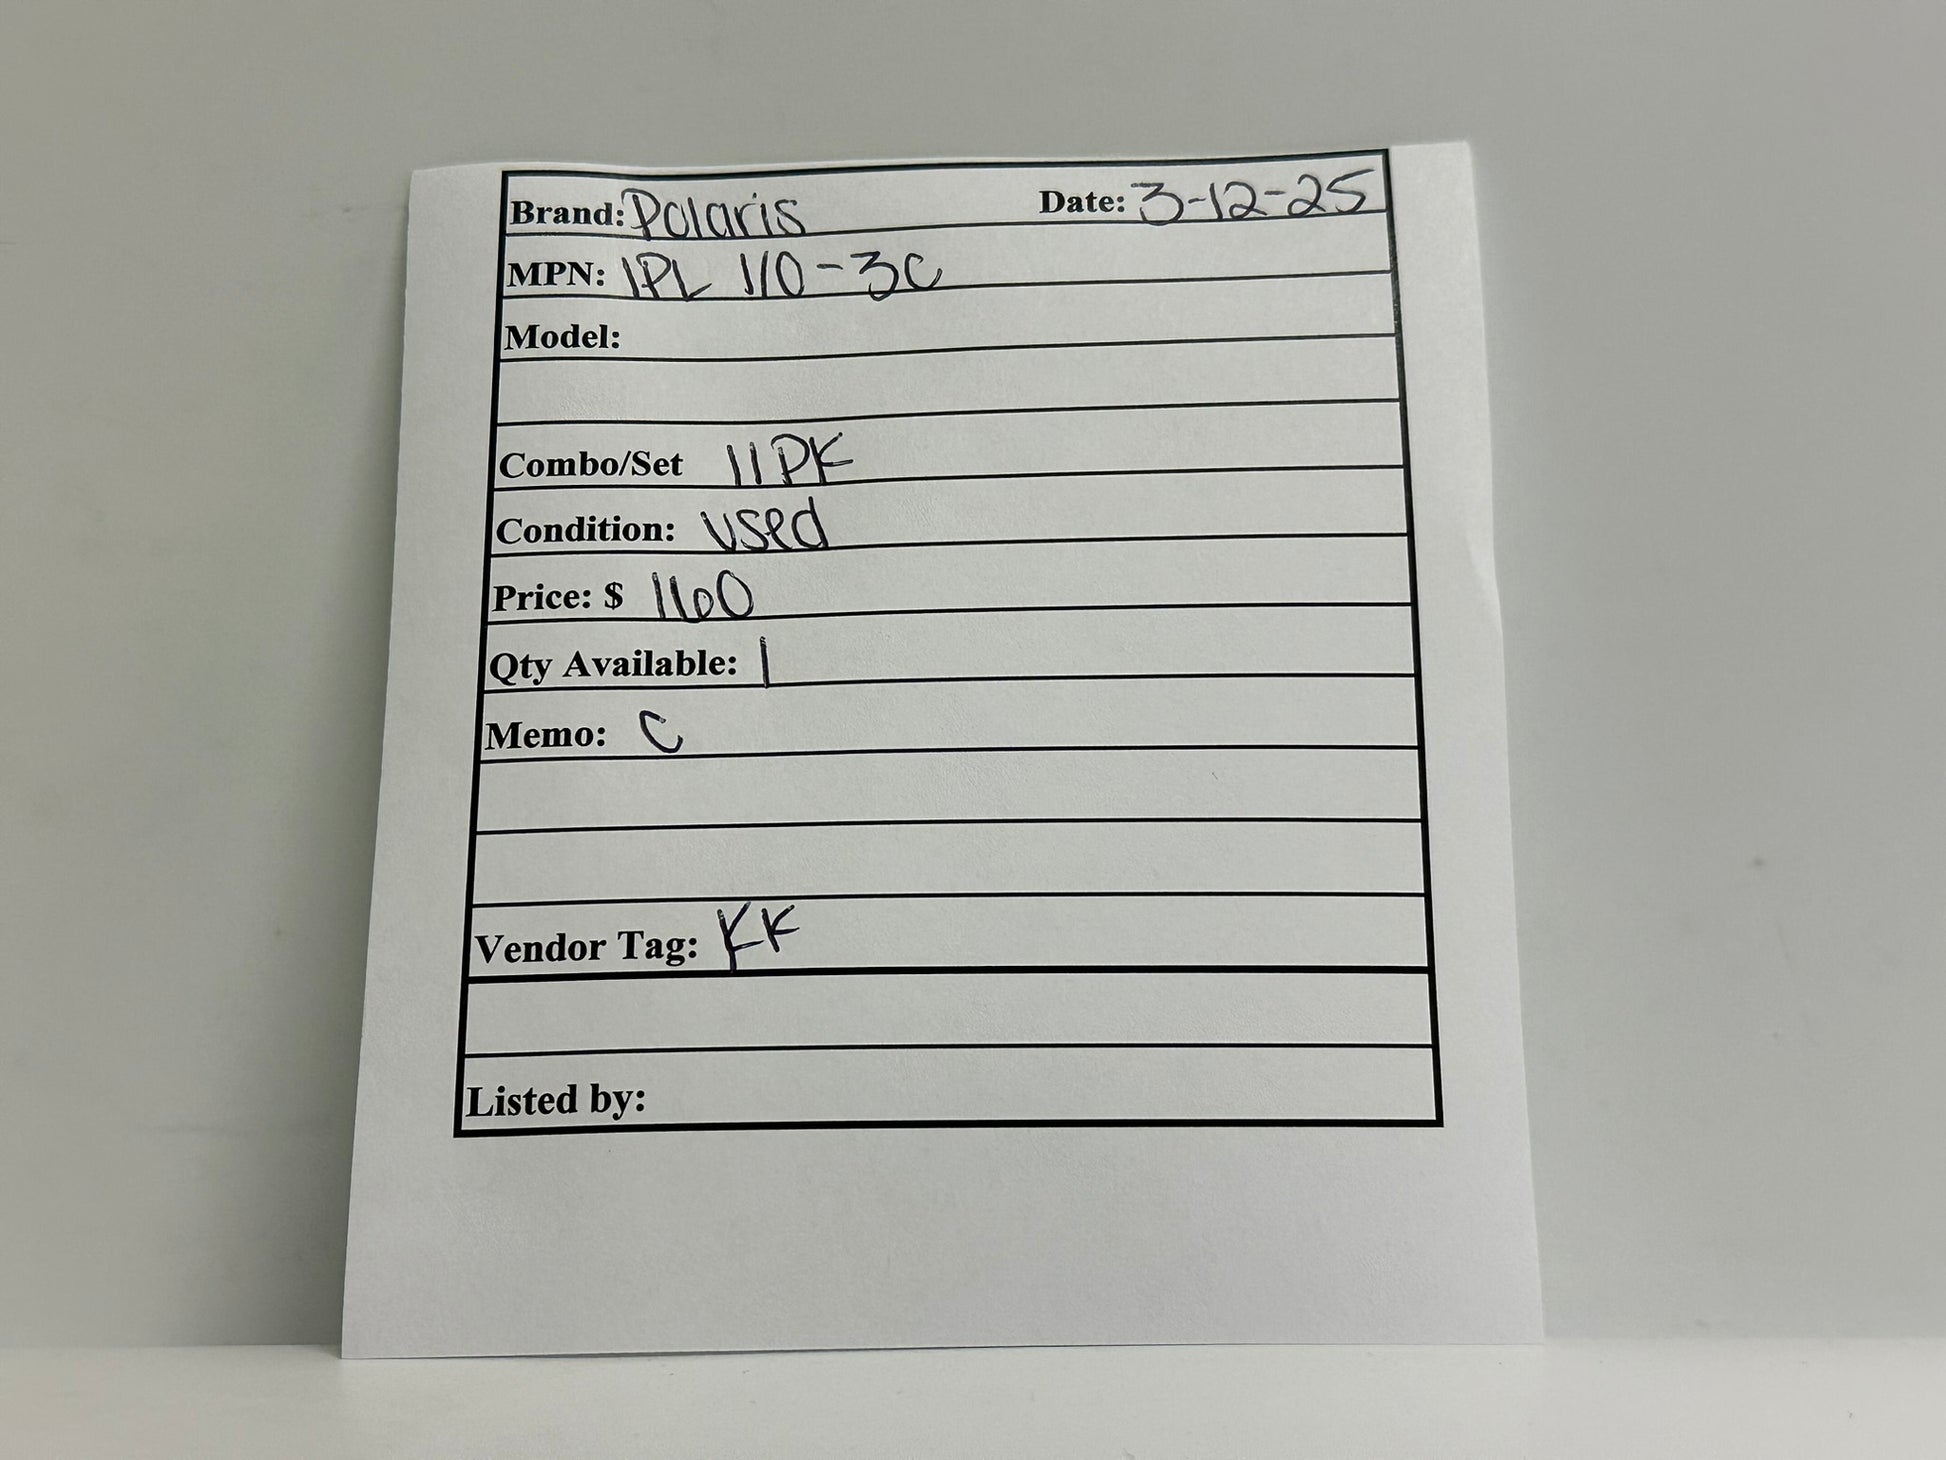 Brand: Polaris Date: 3-12-25
MPN: IPL 110-3C
Model:
Combo/Set 11PK
Condition: used
Price: $ 160
Qty Available: 1
Memo: C
Vendor Tag: KK
Listed by: